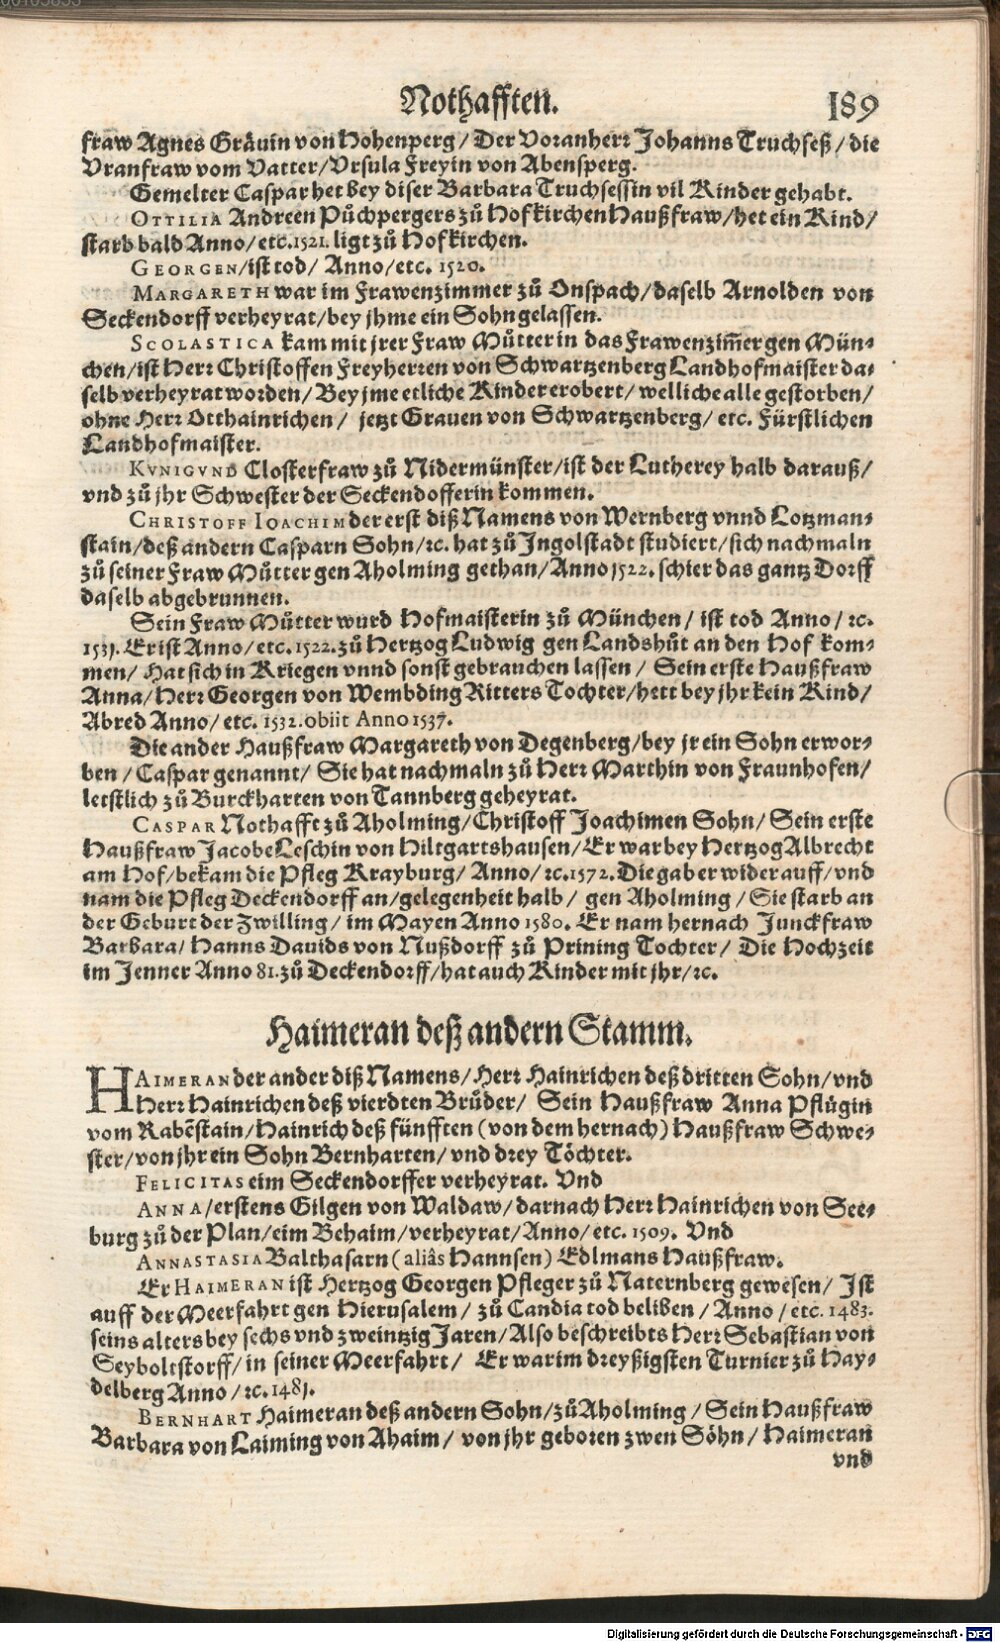 Nothafften. 189
fraw Agnes Gräuin von Hohenperg / Der Voranherr Johanns Truchseß / die
Vranfraw vom Vatter / Vrsula Freyin von Abensperg.
Gemelter Caspar het bey diser Barbara Truchsessin vil Kinder gehabt.
OTTILIA Andreen Püchpergers zů Hofkirchen Haußfraw / het ein Kind /
starb bald Anno / etc. 1521. ligt zů Hofkirchen.
GEORGEN / ist tod / Anno / etc. 1520.
MARGARETH war im Frawenzimmer zů Onspach / daselb Arnolden von
Seckendorff verheyrat / bey jhme ein Sohn gelassen.
SCOLASTICA kam mit jrer Fraw Můtter in das Frawenzim̃er gen Mün-
chen / ist Herr Christoffen Freyherren von Schwartzenberg Landhofmaister da-
selb verheyrat worden / Bey jme etliche Kinder erobert / welliche alle gestorben /
ohne Herr Otthainrichen / jetzt Grauen von Schwartzenberg / etc. Fürstlichen
Landhofmaister.
KVNIGVND Closterfraw zů Nidermünster / ist der Lutherey halb darauß /
vnd zů jhr Schwester der Seckendofferin kommen.
CHRISTOFF IOACHIM der erst diß Namens von Wernberg vnnd Lotzman-
stain / deß andern Casparn Sohn / ꝛc. hat zů Ingolstadt studiert / sich nachmaln
zů seiner Fraw Můtter gen Aholming gethan / Anno 1522. schier das gantz Dorff
daselb abgebrunnen.
Sein Fraw Můtter wurd Hofmaisterin zů München / ist tod Anno / ꝛc.
1531. Er ist Anno / etc. 1522. zů Hertzog Ludwig gen Landshůt an den Hof kom-
men / Hat sich in Kriegen vnnd sonst gebrauchen lassen / Sein erste Haußfraw
Anna / Herr Georgen von Wembding Ritters Tochter / hett bey jhr kein Kind /
Abred Anno / etc. 1532. obiit Anno 1537.
Die ander Haußfraw Margareth von Degenberg / bey jr ein Sohn erwor-
ben / Caspar genannt / Sie hat nachmaln zů Herr Marthin von Fraunhofen /
letstlich zů Burckharten von Tannberg geheyrat.
CASPAR Nothafft zů Aholming / Christoff Joachimen Sohn / Sein erste
Haußfraw Jacobe Leschin von Hiltgartshausen / Er war bey Hertzog Albrecht
am Hof / bekam die Pfleg Krayburg / Anno / ꝛc. 1572. Die gab er wider auff / vnd
nam die Pfleg Deckendorff an / gelegenheit halb / gen Aholming / Sie starb an
der Geburt der Zwilling / im Mayen Anno 1580. Er nam hernach Junckfraw
Barbara / Hanns Dauids von Nußdorff zů Prining Tochter / Die Hochzeit
im Jenner Anno 81. zů Deckendorff / hat auch Kinder mit jhr / ꝛc.
Haimeran deß andern Stamm.
HAIMERAN der ander diß Namens / Herr Hainrichen deß dritten Sohn / vnd
Herr Hainrichen deß vierdten Brůder / Sein Haußfraw Anna Pflůgin
vom Rabẽstain / Hainrich deß fünfften (von dem hernach) Haußfraw Schwe-
ster / von jhr ein Sohn Bernharten / vnd drey Töchter.
FELICITAS eim Seckendorffer verheyrat. Vnd
ANNA / erstens Gilgen von Waldaw / darnach Herr Hainrichen von See-
burg zů der Plan / eim Behaim / verheyrat / Anno / etc. 1509. Vnd
ANNASTASIA Balthasarn (aliâs Hannsen) Edlmans Haußfraw.
Er HAIMERAN ist Hertzog Georgen Pfleger zů Naternberg gewesen / Ist
auff der Meerfahrt gen Hierusalem / zů Candia tod beliben / Anno / etc. 1483.
seins alters bey sechs vnd zweintzig Jaren / Also beschreibts Herr Sebastian von
Seyboltstorff / in seiner Meerfahrt / Er war im dreyßigsten Turnier zů Hay-
delberg Anno / ꝛc. 1481.
BERNHART Haimeran deß andern Sohn / zů Aholming / Sein Haußfraw
Barbara von Laiming von Ahaim / von jhr geboren zwen Söhn / Haimeran
vnd
Digitalisierung gefördert durch die Deutsche Forschungsgemeinschaft - DFG